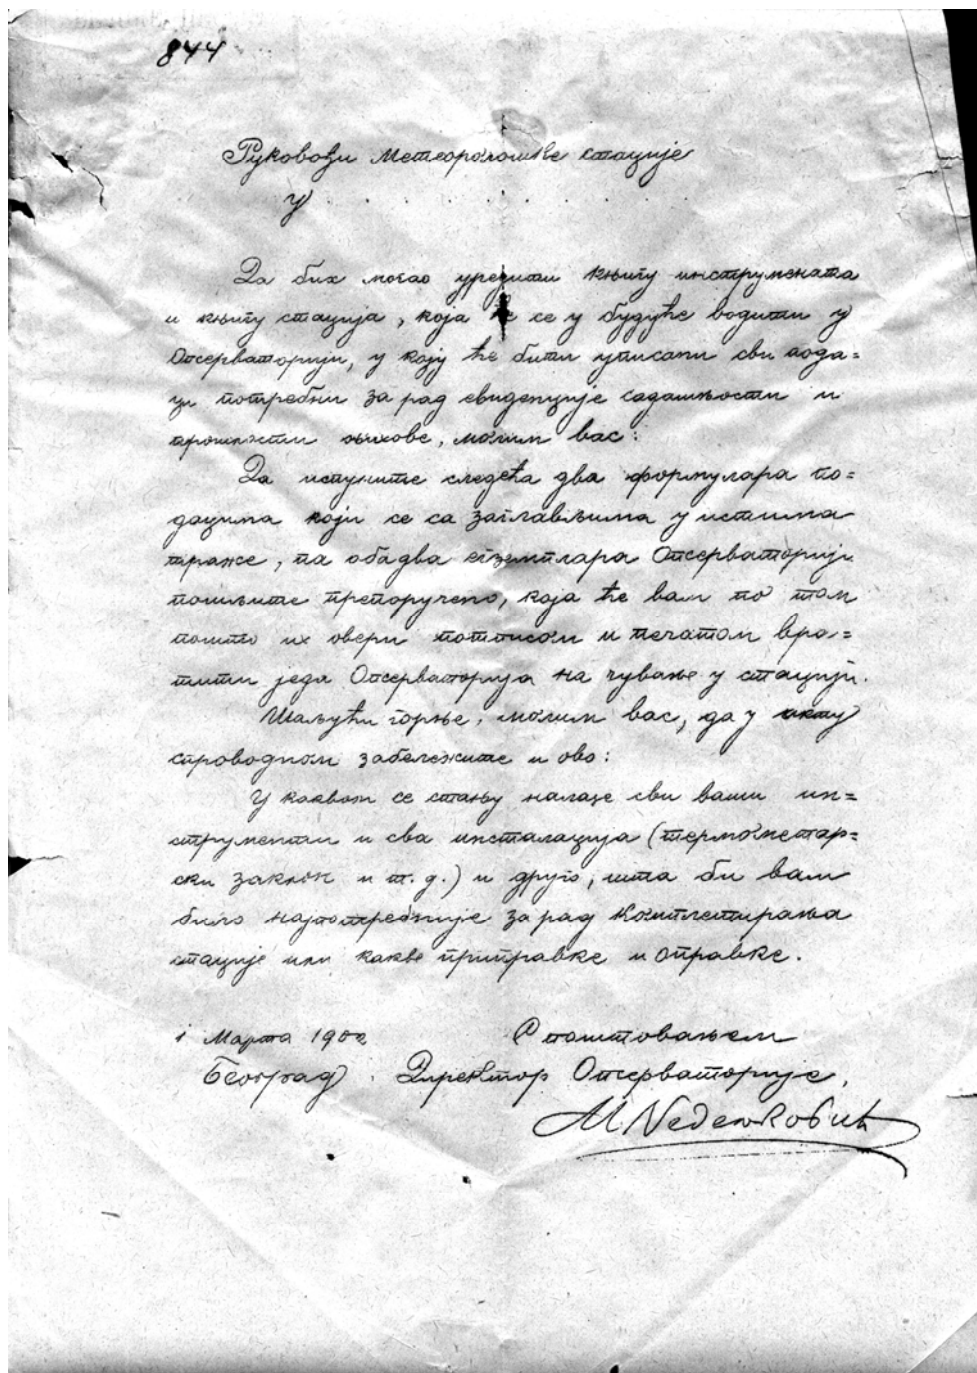 844
Руковођи Метеоролошке стације
у . . . . . . . . . .
Да бих могао уредити књигу инструмената
и књигу стација, која ће се у будуће водити у
Опсерваторији, у коју ће бити уписани сви пода=
ци потребни за рад евиденције садашњости и
прошлости њихове, молим вас:
Да испуните следећа два формулара по=
дацима који се са заглављима у истима
траже, па обадва егземплара Опсерваторији
пошљите препоручено, која ће вам по том
пошто их овери потписом и печатом вра=
тити један Опсерваторија на чување у стацији.
Шаљући горње, молим вас, да у акту
спроводном забележите и ово:
У каквом се стању налазе сви ваши ин=
струменти и сва инсталација (термометар=
ски заклон и т. д.) и друго, шта би вам
било најпотребније за рад комплетирања
стације или какве приправке и оправке.
1 Марта 1902
С поштовањем
Београд. Директор Опсерваторије,
М Недељковић